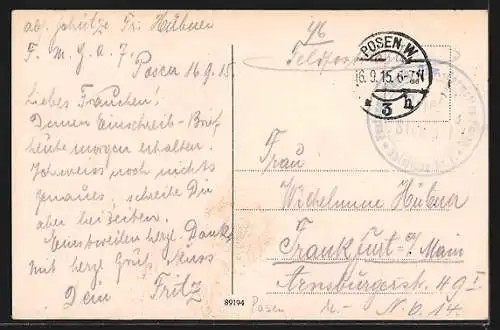 abs. Schütze Fr. Hübner
F. M. G. A. 7.
Posen 16.9.15.
Liebes Frauchen!
Deinen Einschreib-Brief
heute morgen erhalten.
Ich weiss noch nichts
genaues, schreibe Dir
aber beizeiten.
Einstweilen herzl. Dank
mit herzl. Gruß Kuss
Dein Fritz
Feldpost
POSEN W.
16.9.15.6-7N
3 h
Frau
Wilhelmine Hübner
Frankfurt a/Main
Arnsburgerstr. 49 I
N. O. 14.
89194
Posen